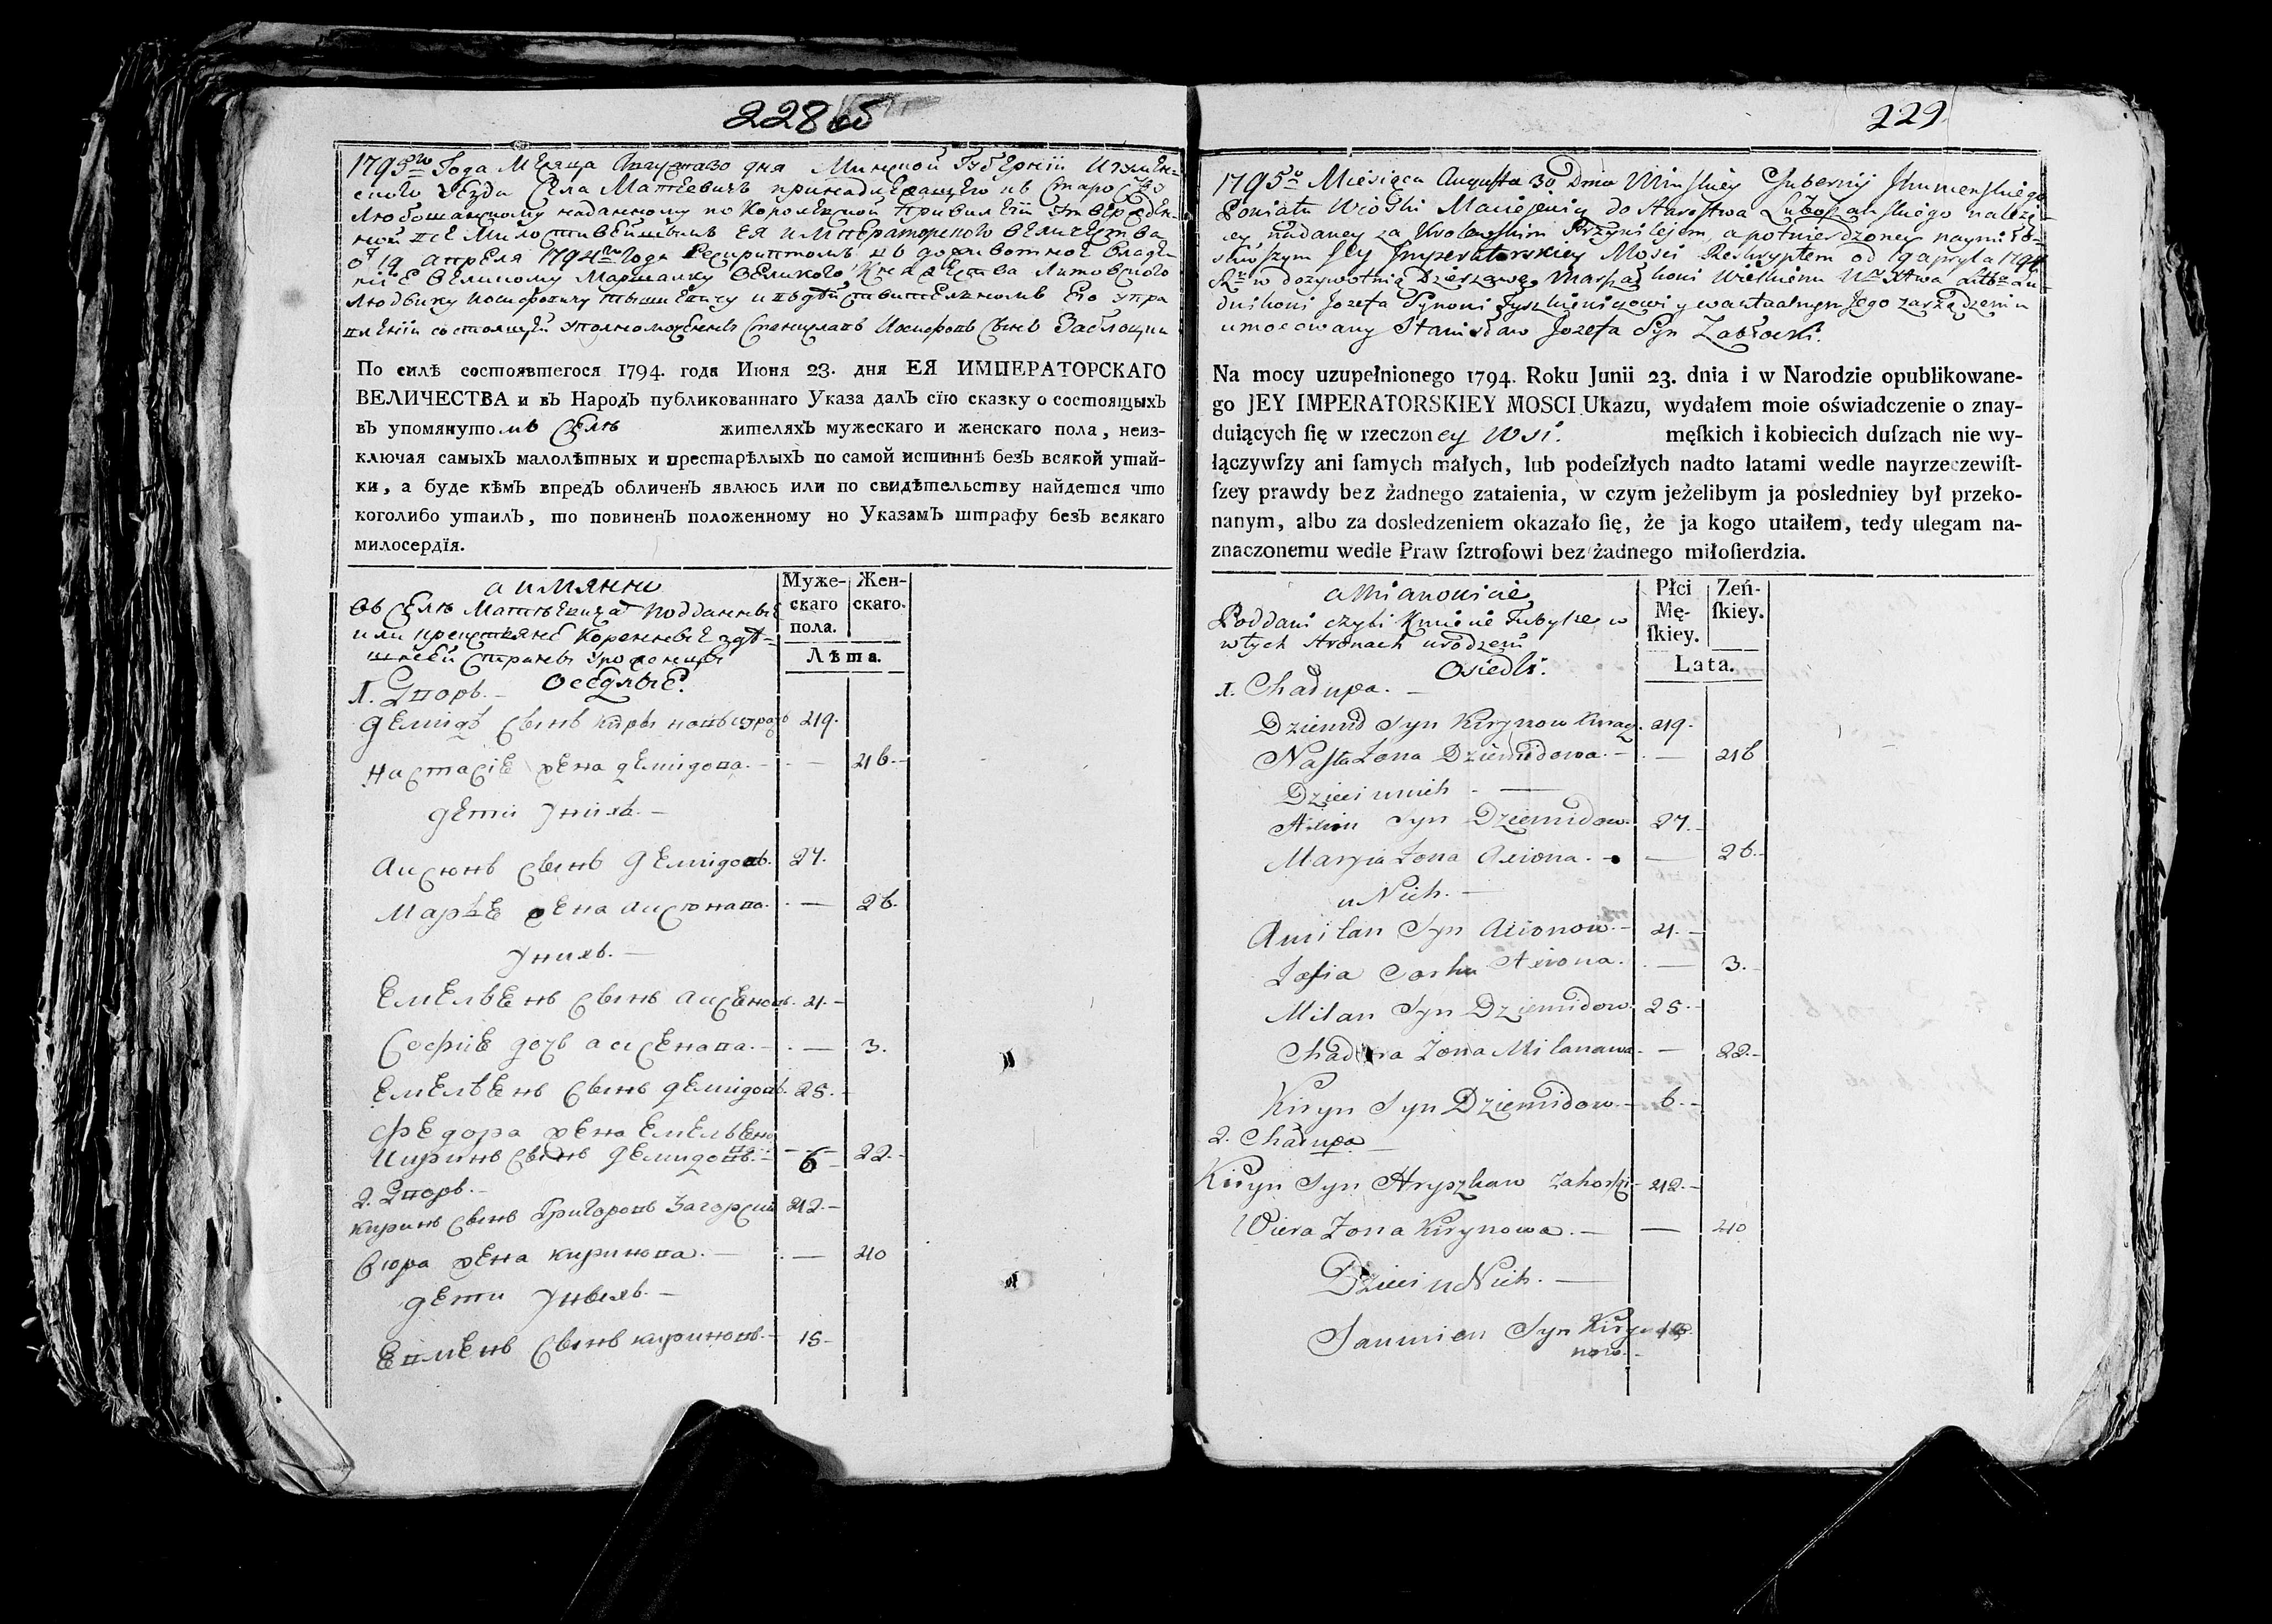 228 об
1795го Года Месяца Августа 30 дня Минской Губернии Игумен-
ского Уезда Села Матеевичъ принадлежащего къ Староству
Любошанскому наданному по Королевской Привилегии утвержден-
ной всемилостивейшимъ ея императорского величества
от 19 апреля 1794го Года Рескриптомъ въ доживотное владе-
ние великому Маршалку великого Княжества Литовского
Людвику Иосифовичу Тышкевичу и въ действительномъ его упра
влении состоящей уполномоченны Станиславъ Иосифовъ Сынъ Заблоцки
По силѣ состоявшегося 1794. года Июня 23. дня ЕЯ ИМПЕРАТОРСКАГО
ВЕЛИЧЕСТВА и въ Народъ публикованнаго Указа далъ сїю сказку о состоящыхъ
въ упомянутомъ Селѣ жителяхъ мужескаго и женскаго пола, неиз-
ключая самыхъ малолѣтныхъ и престарѣлыхъ по самой истиннѣ безъ всякой утай-
ки, а буде кѣмъ впредь обличенъ явлюсь или по свидѣтельству найдется что
коголибо утаилъ, то повиненъ положенному по Указамъ штрафу безъ всякаго
милосердїя.
а имянно
Въ Селѣ Матѣевичахъ подданные
или крестьяне коренные здѣ-
шней Стараны уроженцы
Оседлые.
Муже-
скаго
пола.
Жен-
скаго.
Лѣта.
1. Двор.
Демидъ Сынъ Кириновъ 49.
Настасие жена Демидова. — 46.
дети у нихъ.
Аксюнъ Сынъ Демидовъ. 27.
Марье жена Аксюнава. — 26.
У нихъ.
Емельенъ Сынъ Аксеновъ. 4.
Софие дочь Аксенава. — 3.
Емельенъ Сынъ Демидовъ. 25.
Федора жена Емельено
ва — 22.
Киринъ Сынъ Демидовъ. 6
2. Двор.
Киринъ Сынъ Григоровъ Загорски 42.
жена Киринова. — 40
дети у ныхъ.
Сынъ Кириновъ. 15
229.
1795o Miesiąca Augusta 30 Dnia Minskiey Gubernij Ihumenskiego
Powiatu Wioski Maciejewicz do Starostwa Luboszanskiego należą-
cey, nadaney za Krolewskim Przywilejem, a potwierdzoney naymiło-
sciwszym Jey Imperatorskiey Mosci Reskryptem od 19 apryla 1794
Ru w dozywotnią Dzierzawę Marszałkowi Wielkiemu W. X. Litto Lu-
dwikowi Jozefa Synowi Tyszkiewiczowi y waktualnym Jego zarządzeniu
umocowany Stanisław Jozefa Syn Zabłocki.
Na mocy uzupełnionego 1794. Roku Junii 23. dnia i w Narodzie opublikowane-
go JEY IMPERATORSKIEY MOSCI Ukazu, wydałem moie oświadczenie o znay-
duiących ſię w rzeczoney Wsi. męſkich i kobiecich duſzach nie wy-
łączywſzy ani ſamych małych, lub podeſzłych nadto latami wedle nayrzeczewiſt-
ſzey prawdy bez żadnego zataienia, w czym jeżelibym ja posledniey był przeko-
nanym, albo za dosledzeniem okazało ſię, że ja kogo utaiłem, tedy ulegam na-
znaczonemu wedle Praw ſztrofowi bez żadnego miłoſierdzia.
a Mianowicie
Poddani czyli Kmiecie Tubylce w
w tych Stronach urodzeni
Osiedli.
Płci
Mę-
ſkiey.
Zeń-
ſkiey.
Lata.
1. Chałupa. —
Dziemid Syn Kirynow 49.
Nasta Zona Dziemidowa. — 46
Dzieci u nich —
Axion Syn Dziemidow. 27.
Maryia Zona Axiona. — 26.
u Nich. —
Amilan Syn Axionow. — 4.
Zofia Corka Axiona. — 3.
Milan Syn Dziemidow. 25.
Chadora Zona Milanawa. — 22.
Kiryn Syn Dziemidow. — 6.
2. Chałupa —
Kiryn Syn Hryszkaw Zahorski 42.
Wiera Zona Kirynowa. — 40
Dzieci u Nich. —
Saumien Syn Kiry
now. 15